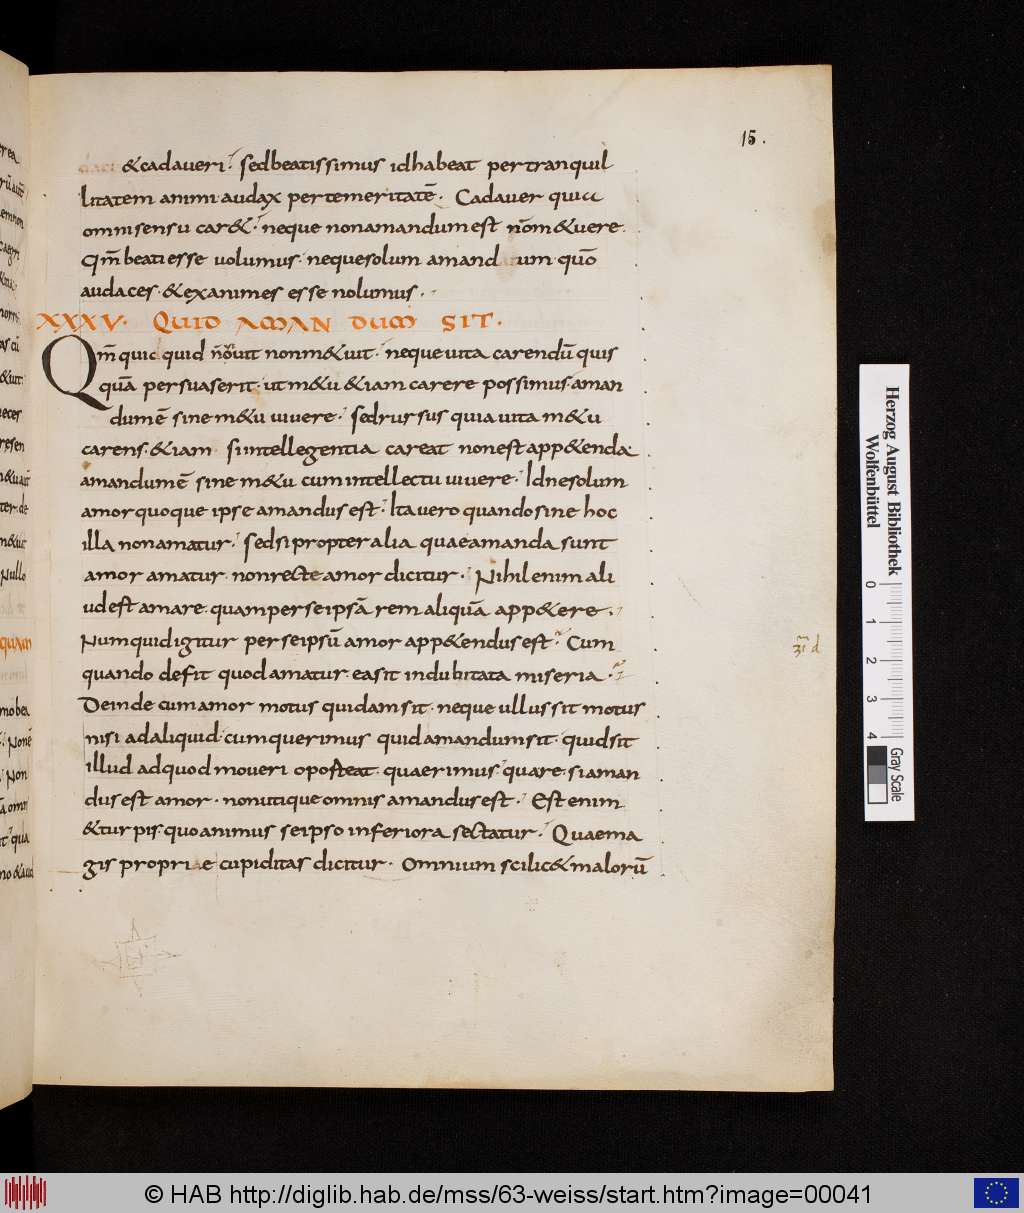 15.
daci &cadaueri; sedbeatissimus idhabeat pertranquil
litatem animi audax pertemeritatē. Cadauer quia
omnisensu car&; neque nonamandumest nōm&uere.
Qm̄ beatiesse uolumus. nequesolum amandum quō
audaces. &exanimes esse nolumus.
XXXV. QUID AMAN DUM SIT.
Qm̄ quicquid nōuit nonm&uit. neque uita carendū quis
quā persuaserit. utm&u &iam carere possimus. aman
dumē sine m&u uiuere; sedrursus quia uita m&u
carens. &iam siintellegentia careat nonest app&enda.
amandumē sine m&u cumintellectu uiuere; Idnesolum
amorquoque ipse amandusest; Ita uero quandosine hoc
illa nonamatur; sedsipropter alia quaeamanda sunt
amor amatur. nonrecte amor dicitur. Nihilenim ali
udest amare. quamperseipsā rem aliquā app&ere.
Numquidigitur perseipsū amor app&endusest; Cum
quando desit quodamatur. easit indubitata miseria.
Deinde cumamor motus quidamsit. neque ullussit motus
nisi adaliquid. cumquerimus quidamandumsit. quidsit
illud adquodmoueri oporteat. quaerimus; quare siaman
dusest amor. nonutique omnis amandusest; Est enim
&turpis. quoanimus seipso inferiora sectatur; Quaema
gis propriae cupiditas dicitur. Omnium scilic& malorū
Herzog August Bibliothek
Wolfenbüttel
0 1 2 3 4
Gray Scale
© HAB http://diglib.hab.de/mss/63-weiss/start.htm?image=00041